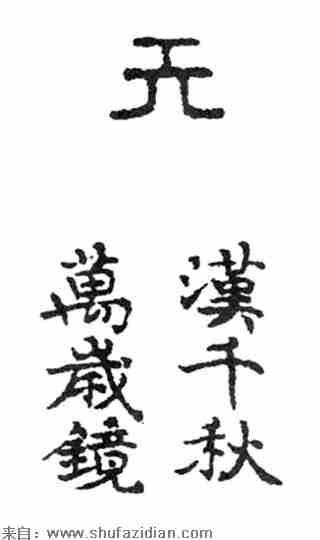 天
漢千秋
萬歲鏡
来自：www.shufazidian.com